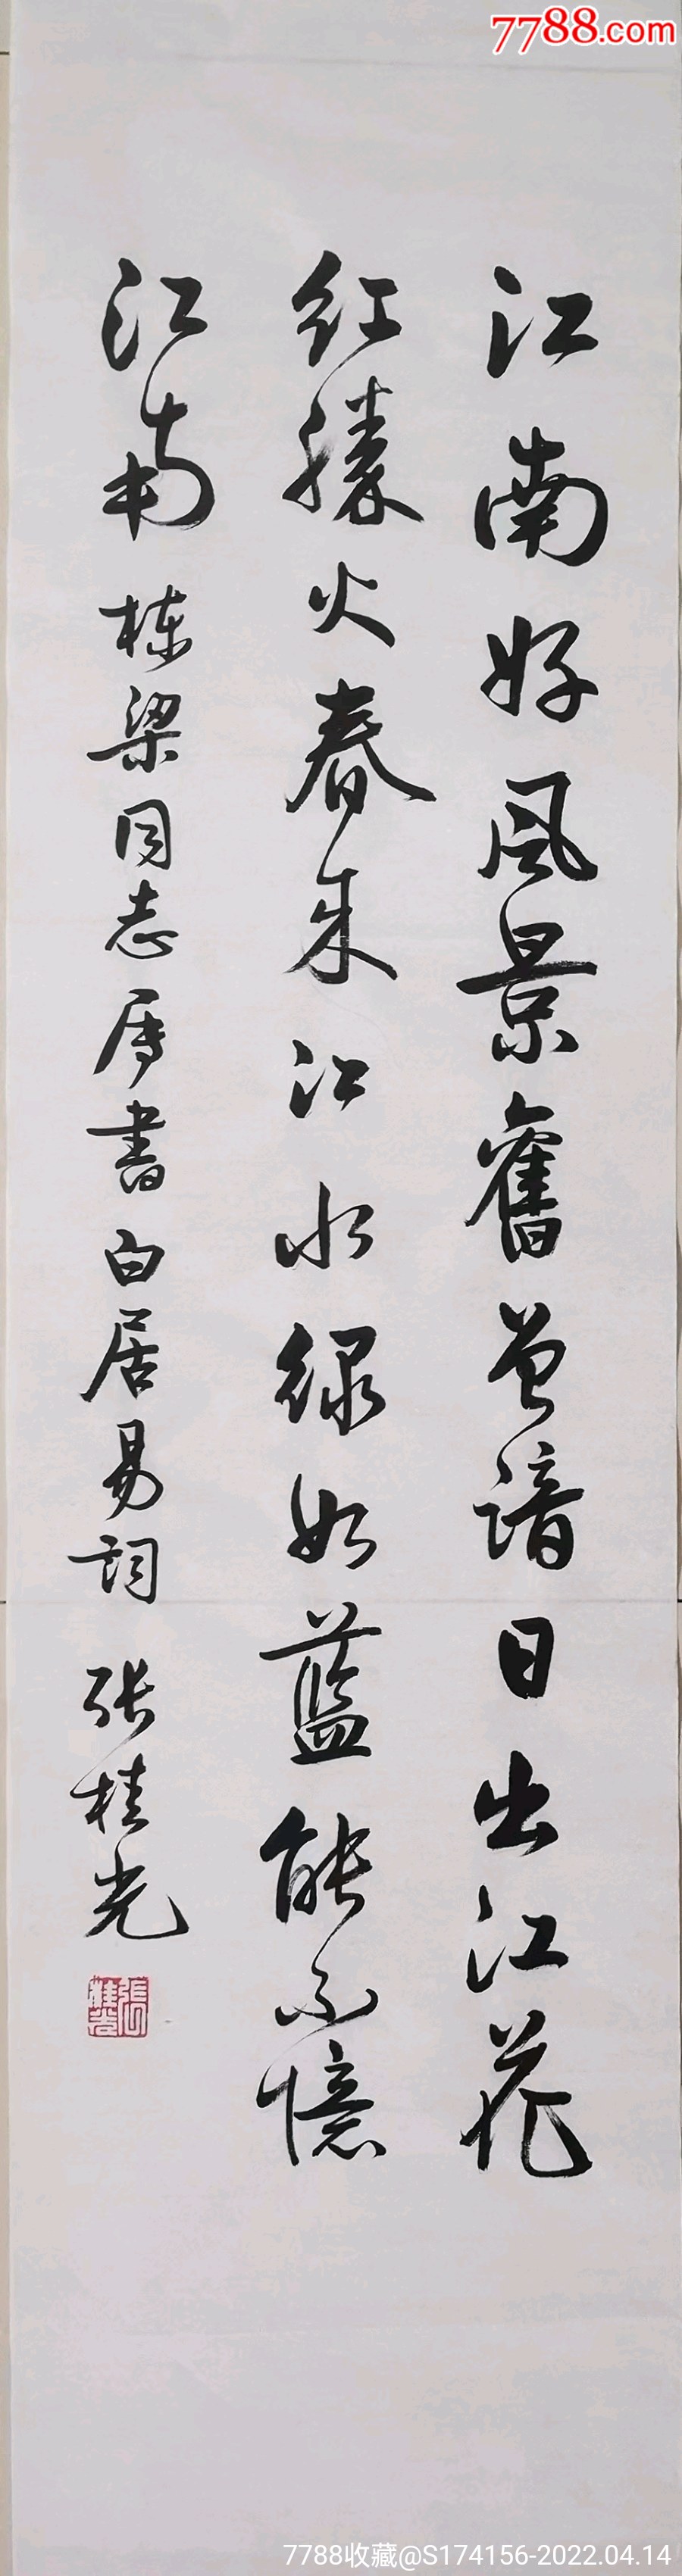 7788.com
江南好风景舊曾諳日出江花
红勝火春来江水绿如蓝能不憶
江南 栋梁同志属書白居易词 张桂光
張桂光
7788收藏@S174156-2022.04.14